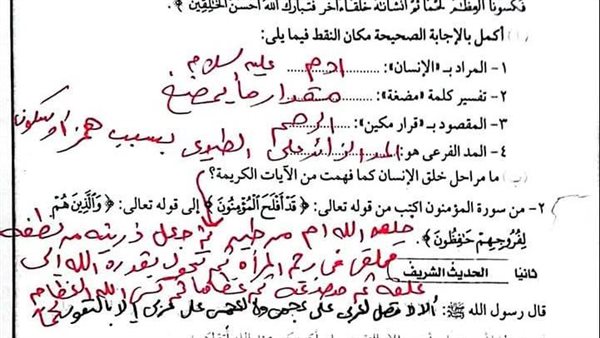 فكسونا العظم لحما ثم أنشأنه خلقا ءاخر فتبارك الله أحسن الخلقين ﴾.
أكمل بالإجابة الصحيحة مكان النقط فيما يلى:
١- المراد بـ «الإنسان»: ادم عليه سلام
٢- تفسير كلمة «مضغة»: مقدار ما يمضغ
٣- المقصود بـ «قرار مكين»: الرحم
٤- المد الفرعى هو: المد الزائد على الطبيعى بسبب همز او سكون
(ب) ما مراحل خلق الإنسان كما فهمت من الآيات الكريمة؟
٢- من سورة المؤمنون اكتب من قوله تعالى: ﴿ قَدْ أَفْلَحَ الْمُؤْمِنُونَ ﴾ إلى قوله تعالى: ﴿ وَالَّذِينَ هُمْ
لِفُرُوجِهِمْ حَفِظُونَ ﴾.
خلق الله ادم من طين ثم جعل ذريته من نطفه
فى رحم المرأه ثم تتحول بقدرة الله الى
ثانيًا الحديث الشريف
علقه ثم مضغه ثم عظاما ثم كسى الله العظام لحما
قال رسول الله ﷺ: ألا لا فضل لعربى على عجمى ولا لعجمى على عربى إلا بالتقوى